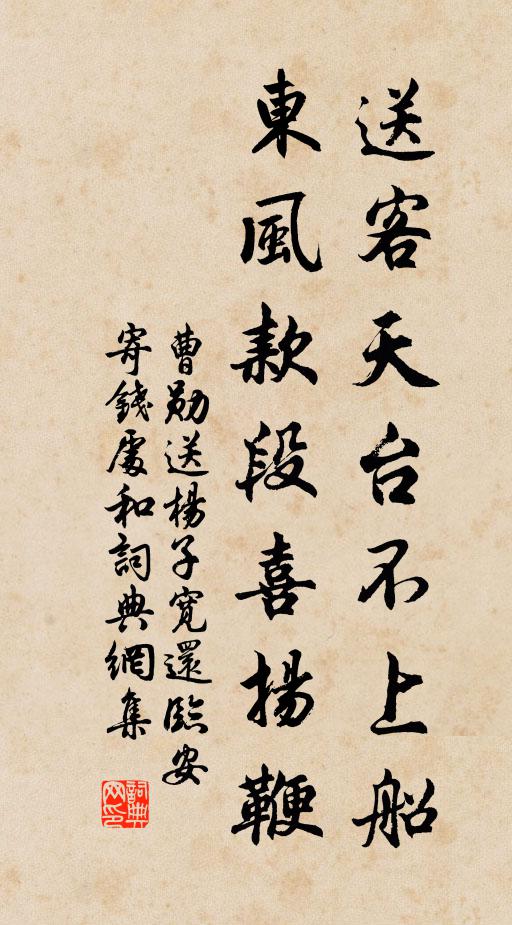 送客天台不上船
東風款段喜揚鞭
曹勛送楊子寬還臨安
寄錢處和詞典網集
詞典網印